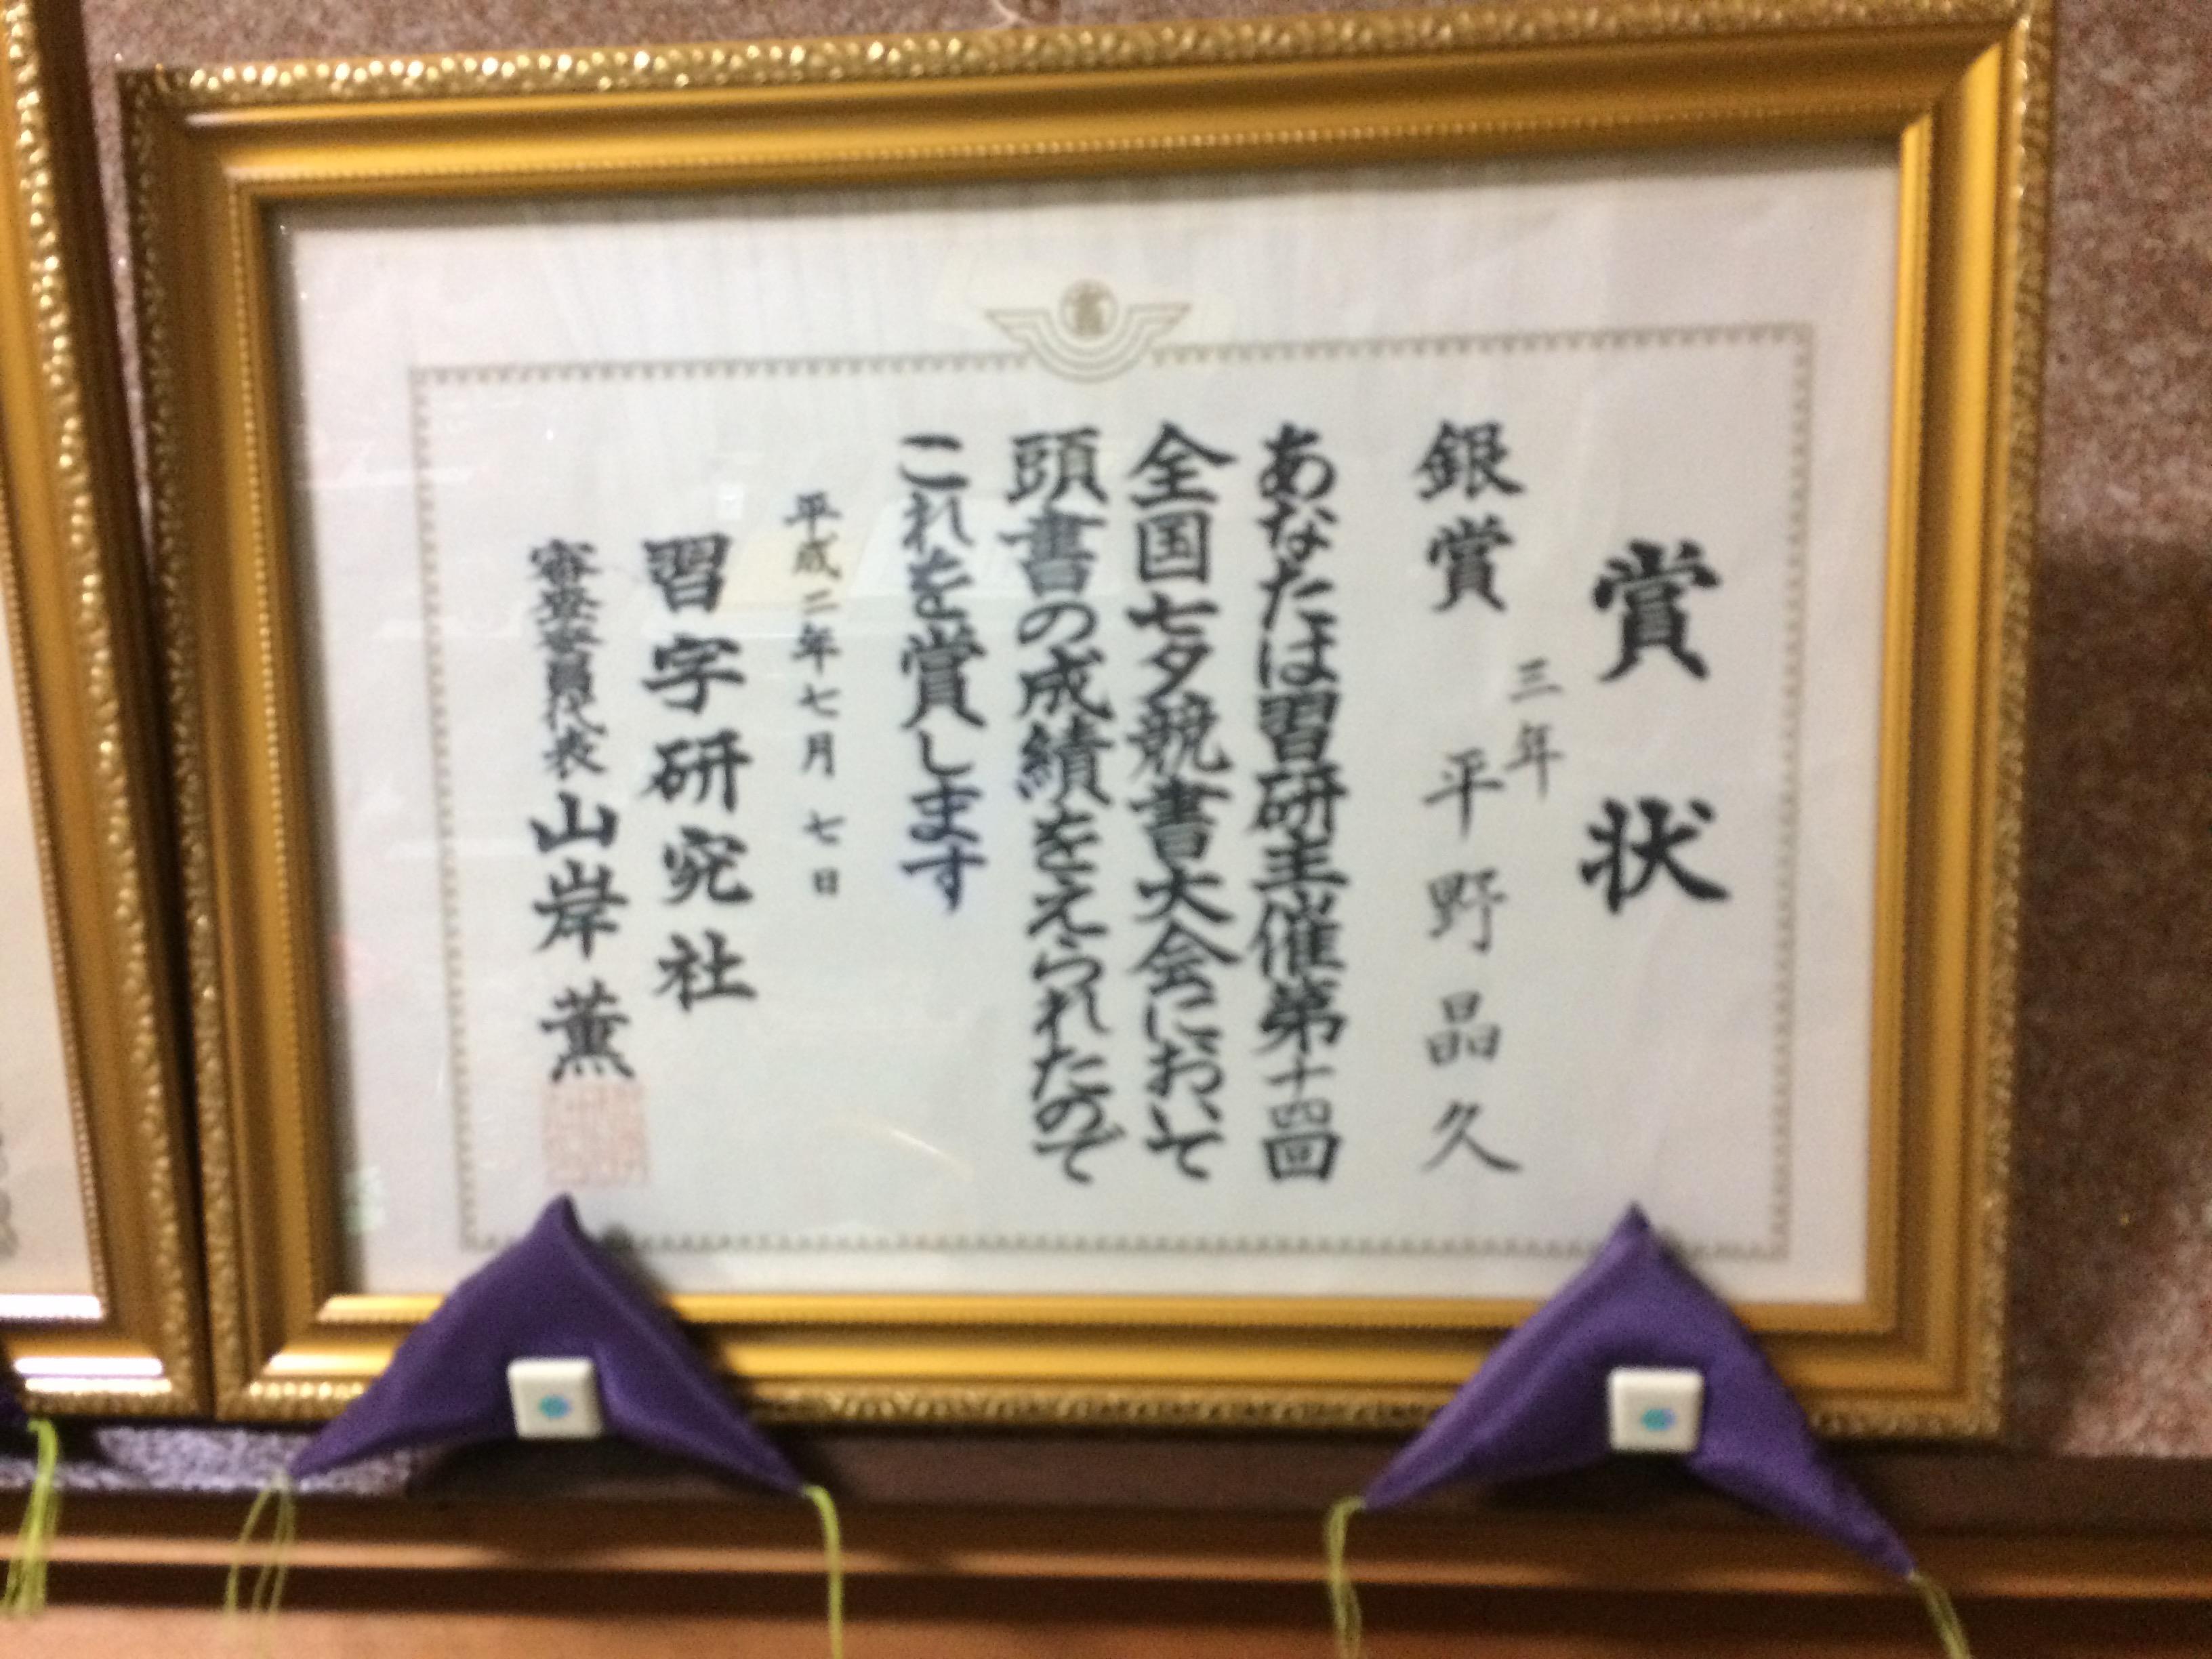 賞状
銀賞
三年
平野晶久
あなたは習研主催第十四回
全国七夕競書大会において
頭書の成績をえられたので
これを賞します
平成二年七月七日
習字研究社
審査委員代表 山岸薫